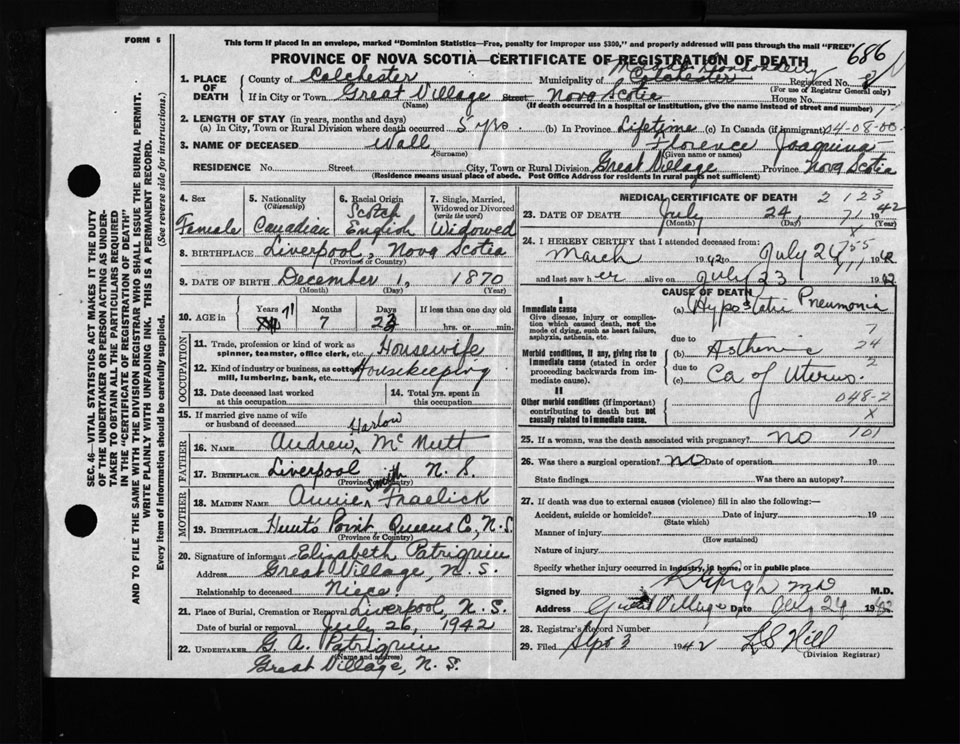 FORM 6
This form if placed in an envelope, marked "Dominion Statistics—Free, penalty for improper use $300," and properly addressed will pass through the mail "FREE"
686
PROVINCE OF NOVA SCOTIA—CERTIFICATE OF REGISTRATION OF DEATH
1. PLACE OF DEATH County of Colchester Municipality of Colchester Registered No. 8
(For use of Registrar General only)
If in City or Town Great Village Street Nova Scotia House No.
(Name) (If death occurred in a hospital or institution, give the name instead of street and number)
2. LENGTH OF STAY (in years, months and days)
(a) In City, Town or Rural Division where death occurred 5 yrs. (b) In Province Liptime (c) In Canada (if immigrant) 04-08-00
3. NAME OF DECEASED Wall Florence Joaquina
(Surname) (Given name or names)
RESIDENCE No. Street City, Town or Rural Division Great Village Province Nova Scotia
(Residence means usual place of abode. Post Office Address for residents in rural parts not sufficient)
4. Sex Female
5. Nationality (Citizenship) Canadian
6. Racial Origin Scotch English
7. Single, Married, Widowed or Divorced (write the word) Widowed
8. BIRTHPLACE Liverpool, Nova Scotia
(Province or Country)
9. DATE OF BIRTH December 1, 1870
(Month) (Day) (Year)
10. AGE in Years 71 Months 7 Days 23 If less than one day old
hrs. or min.
OCCUPATION
11. Trade, profession or kind of work as spinner, teamster, office clerk, etc. Housewife
12. Kind of industry or business, as cotton mill, lumbering, bank, etc. Housekeeping
13. Date deceased last worked at this occupation
14. Total yrs. spent in this occupation
15. If married give name of wife or husband of deceased
FATHER
16. NAME Andrew Harlow McNutt
17. BIRTHPLACE Liverpool N. S.
(Province or Country)
MOTHER
18. MAIDEN NAME Annie Smith Fraelick
19. BIRTHPLACE Hunt's Point, Queens Co, N. S.
(Province or Country)
20. Signature of informant Elizabeth Patriquin
Address Great Village, N. S.
Relationship to deceased Niece
21. Place of Burial, Cremation or Removal Liverpool, N. S.
Date of burial or removal July 26, 1942
22. UNDERTAKER G. A. Patriquin
(Name and address)
Great Village, N. S.
MEDICAL CERTIFICATE OF DEATH 2 123
23. DATE OF DEATH July 24, 71 1942
(Month) (Day) (Year)
24. I HEREBY CERTIFY that I attended deceased from:
March 1942 to July 24 1942
and last saw her alive on July 23 1942
CAUSE OF DEATH
I
Immediate cause
Give disease, injury or complication which caused death, not the mode of dying, such as heart failure, asphyxia, asthenia, etc.
(a) Hypostatic Pneumonia
7
due to
Morbid conditions, if any, giving rise to immediate cause (stated in order proceeding backwards from immediate cause).
(b) Asthenic
24
2
due to
(c) Ca of Uterus.
II
Other morbid conditions (if important) contributing to death but not causally related to immediate cause.
048-2
X
101
25. If a woman, was the death associated with pregnancy? no
26. Was there a surgical operation? no Date of operation 19
State findings Was there an autopsy?
27. If death was due to external causes (violence) fill in also the following:—
Accident, suicide or homicide? Date of injury 19
(State which)
Manner of injury
(How sustained)
Nature of injury
Specify whether injury occurred in industry, in home, or in public place
Signed by M.D.
Address Great Village Date Aug 24 1942
28. Registrar's Record Number
29. Filed Sept 3 1942 L S Hill
(Division Registrar)
SEC. 46—VITAL STATISTICS ACT MAKES IT THE DUTY
OF THE UNDERTAKER OR PERSON ACTING AS UNDERTAKER TO OBTAIN ALL THE PARTICULARS REQUIRED
IN THE "CERTIFICATE OF REGISTRATION OF DEATH"
AND TO FILE THE SAME WITH THE DIVISION REGISTRAR WHO SHALL ISSUE THE BURIAL PERMIT.
WRITE PLAINLY WITH UNFADING INK. THIS IS A PERMANENT RECORD.
Every item of information should be carefully supplied. (See reverse side for instructions.)